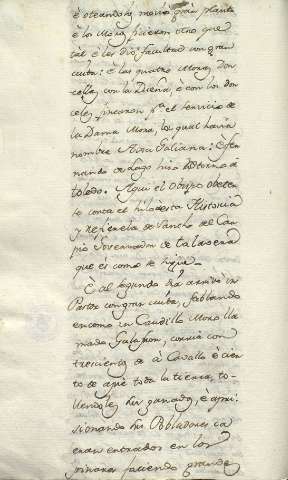 è oteandola movio grân planto
è lo Mora ficieron otro que
tal è les dio facultad con gran
cuita: è las quatro Moras Don
cellas, con la Dueña, è con los don
celes fincaron pª el servicio de
la Dama Mora, la qual havia
nombre Aixa Galiana: è Fer
nando de Lago hizo retorno à
toledo. Aqui el obispo
conta el hilo desta Historia
y Refierela de Sancho del Car
pio Governador de talavera
que és como se sigue.
È al segundo dia arrivó un
Pastor con gran cuita, fablando
en como un Caudillo Moro lla
mado Galafron, corria con
trecientos de à Cavallo è cien
to de apie toda la tierra, to
llendoles sus ganados, è apri
sionando sus Pobladores ca
eran entrados en los
pinares faciendo grande